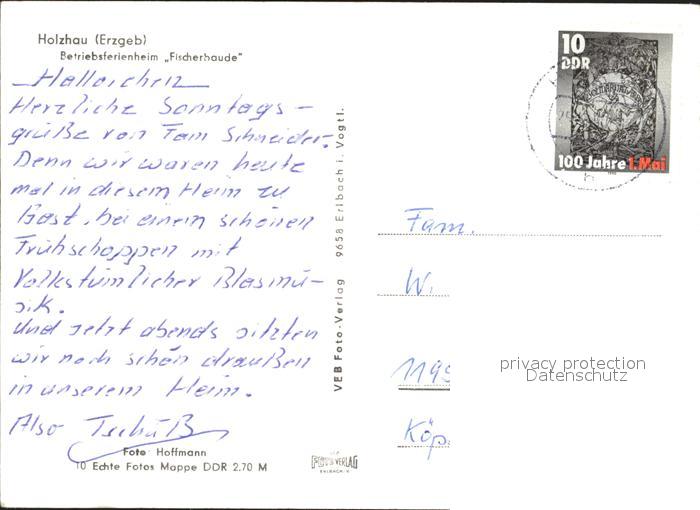 Holzhau (Erzgeb)
Betriebsferienheim „Fischerbaude"
Hallöichen
Herzliche Sonntags-
grüße von Fam Schneider.
Denn wir waren heute
mal in diesem Heim zu
Gast, bei einem schönen
Frühschoppen mit
Volkstümlicher Blasmu-
sik.
Und jetzt abends sitzten
wir noch schön draußen
in unserem Heim.
Also Tschüß
Foto Hoffmann
10 Echte Fotos Mappe DDR 2.70 M
VEB Foto-Verlag 9658 Erlbach i. Vogtl.
FOTO VERLAG
ERLBACH V.
10
DDR
100 Jahre 1. Mai
Fam.
W.
1195
Köp.
privacy protection
Datenschutz